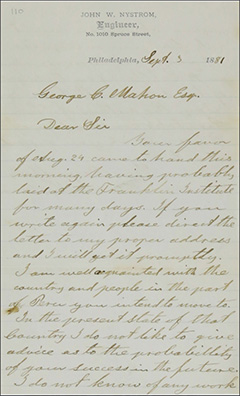 110
JOHN W. NYSTROM,
Engineer,
No. 1010 Spruce Street,
Philadelphia, Sept. 3 1881
George C. Mahon Esq.
Dear Sir
Your favor
of Aug. 24 came to hand this
morning, having probably
laid at the Franklin Institute
for many days. If you
write again please direct the
letter to my proper address
and I will get it promptly.
I am well aquainted with the
country and people in the part
of Peru you intend to move to.
In the present state of that
Country I do not like to give
advice as to the probability
of your success in the future.
I do not know of any work